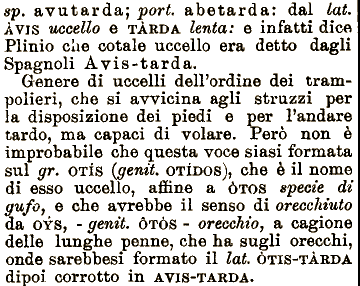 sp. avutarda; port. abetarda: dal lat.
ÀVIS uccello e TÀRDA lenta: e infatti dice
Plinio che cotale uccello era detto dagli
Spagnoli Avis-tarda.
Genere di uccelli dell'ordine dei tram-
polieri, che si avvicina agli struzzi per
la disposizione dei piedi e per l'andare
tardo, ma capaci di volare. Però non è
improbabile che questa voce siasi formata
sul gr. OTÍS (genit. OTÍDOS), che è il nome
di esso uccello, affine a ÔTOS specie di
gufo, e che avrebbe il senso di orecchiuto
da OŶS, - genit. ÔTÒS - orecchio, a cagione
delle lunghe penne, che ha sugli orecchi,
onde sarebbesi formato il lat. ÒTIS-TÀRDA
dipoi corrotto in AVIS-TARDA.